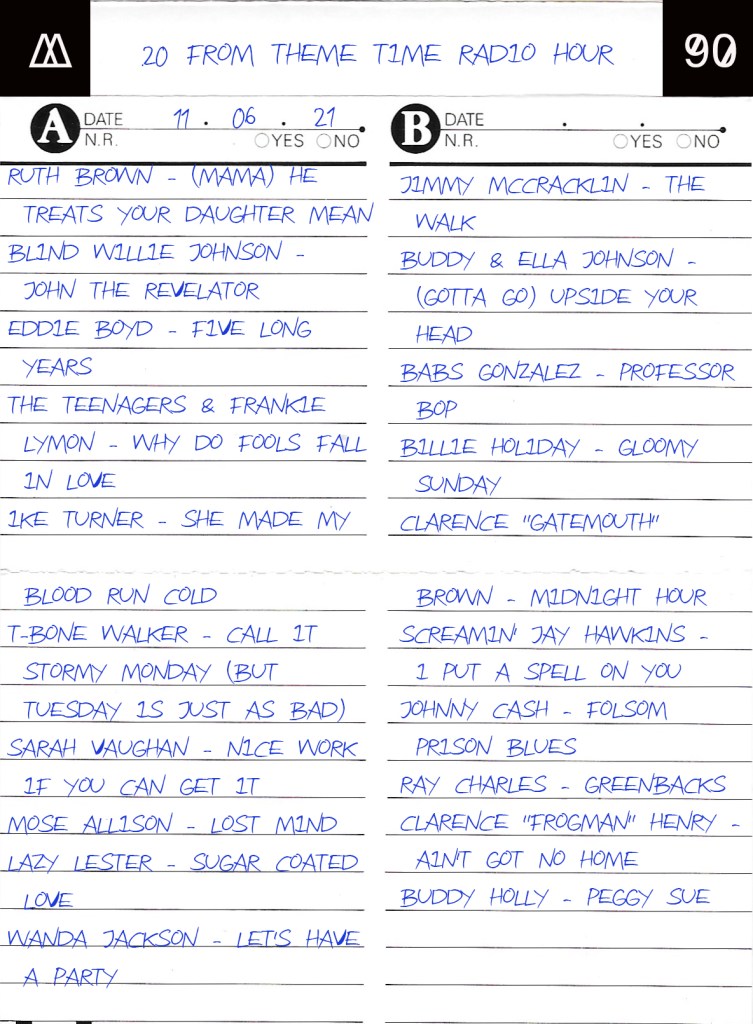 20 FROM THEME TIME RADIO HOUR
90
A DATE 11 . 06 . 21
N.R. YES NO
RUTH BROWN - (MAMA) HE
TREATS YOUR DAUGHTER MEAN
BLIND WILLIE JOHNSON -
JOHN THE REVELATOR
EDDIE BOYD - FIVE LONG
YEARS
THE TEENAGERS & FRANKIE
LYMON - WHY DO FOOLS FALL
IN LOVE
IKE TURNER - SHE MADE MY
BLOOD RUN COLD
T-BONE WALKER - CALL IT
STORMY MONDAY (BUT
TUESDAY IS JUST AS BAD)
SARAH VAUGHAN - NICE WORK
IF YOU CAN GET IT
MOSE ALLISON - LOST MIND
LAZY LESTER - SUGAR COATED
LOVE
WANDA JACKSON - LET'S HAVE
A PARTY
B DATE . .
N.R. YES NO
JIMMY MCCRACKLIN - THE
WALK
BUDDY & ELLA JOHNSON -
(GOTTA GO) UPSIDE YOUR
HEAD
BABS GONZALEZ - PROFESSOR
BOP
BILLIE HOLIDAY - GLOOMY
SUNDAY
CLARENCE "GATEMOUTH"
BROWN - MIDNIGHT HOUR
SCREAMIN' JAY HAWKINS -
I PUT A SPELL ON YOU
JOHNNY CASH - FOLSOM
PRISON BLUES
RAY CHARLES - GREENBACKS
CLARENCE "FROGMAN" HENRY -
AIN'T GOT NO HOME
BUDDY HOLLY - PEGGY SUE